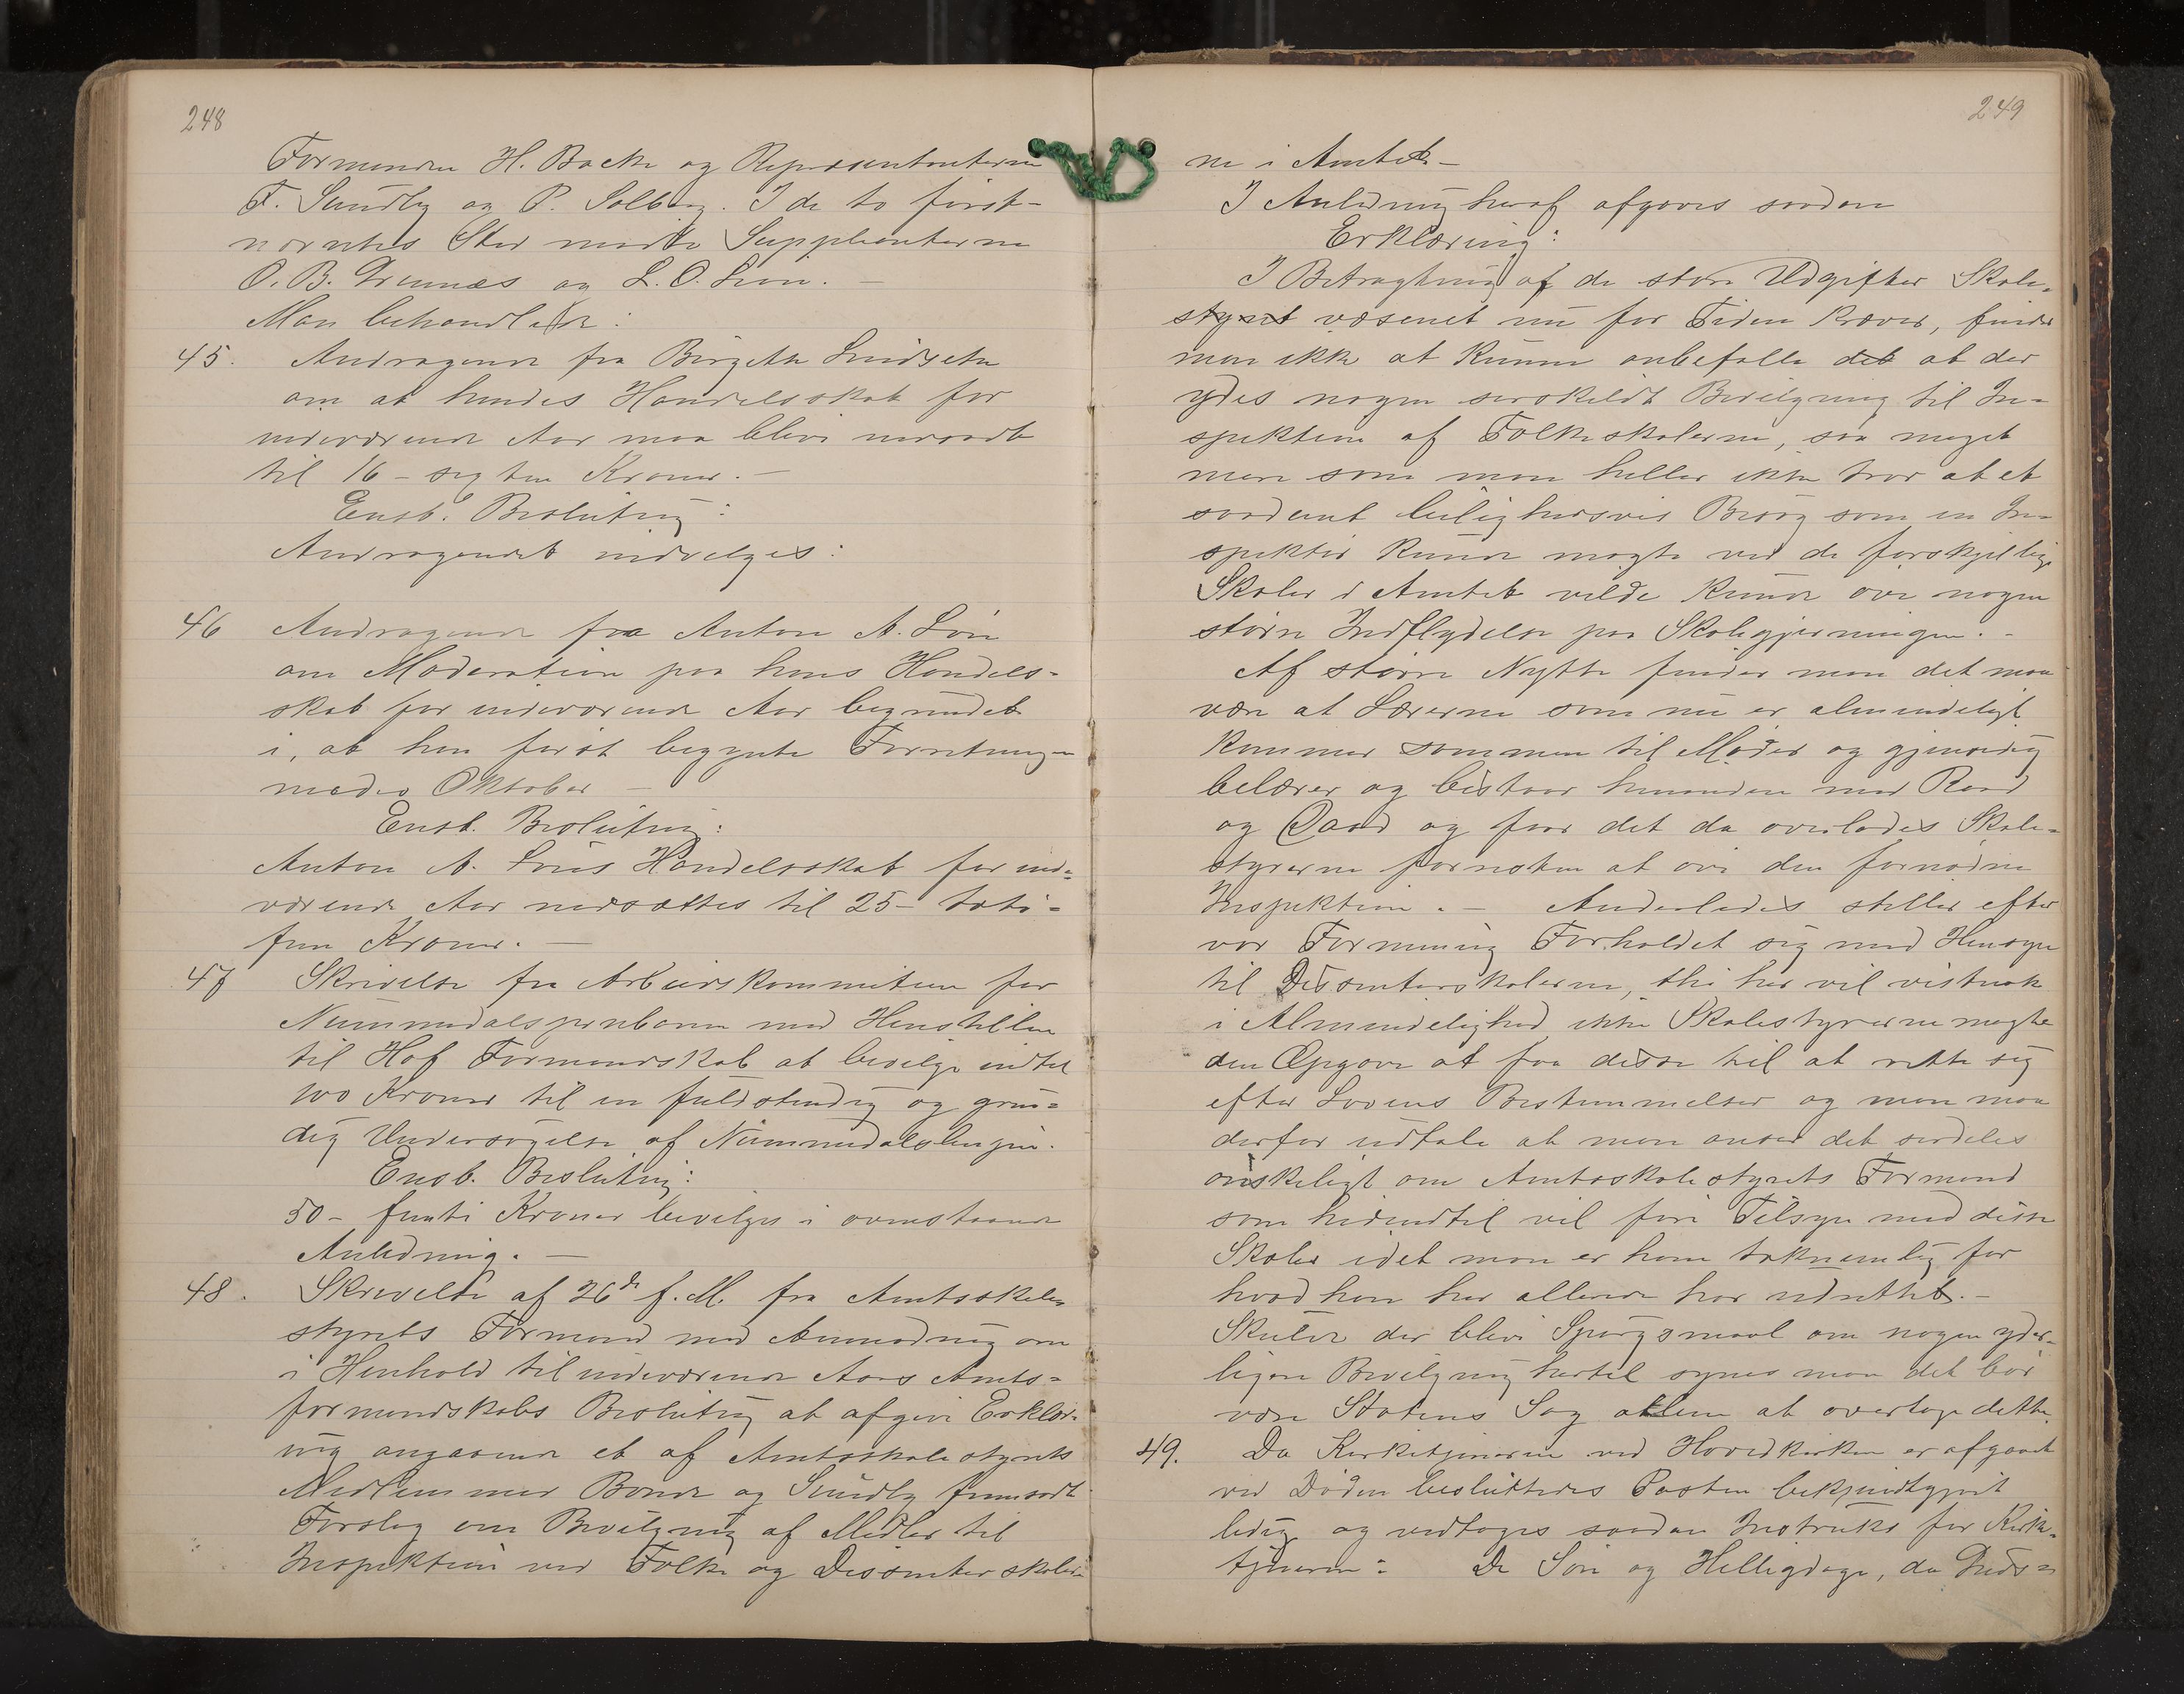 248
Formanden H. Bache og Repræsentanterne
F. Sundby og P. Solberg. I de to først-
nævntes Sted mødte Suppleanterne
O. B. og L. O. Lien. –
Man behandlede:
45. Andragende fra Birgithe Lindseth
om at hendes Handelsskat for
indeværende Aar maa blive nedsat
til 16 – sexten Kroner. –
Enst. Beslutning:
Andragendet indvilges:
46 Andragende fra Anton A. Löie
om Moderation paa hans Handels-
skat for indeværende Aar begrundet
i, at han først begynte Forretningen
medio Oktober –
Enst. Beslutning:
Anton A. Löies Handelsskat for inde-
værende Aar nedsættes til 25 – toti-
fem Kroner. –
47 Skrivelse fra Arbeidskommiteen for
Nummedalsjernbanen med Henstillen
til Hof Formandskab at bevilge indtil
100 Kroner til en fuldstendig og grun-
dig Undersøgelse af Nummedalslinjen.
Enst. Beslutning:
50 – femti Kroner bevilges i ovenstaaende
Anledning. –
48. Skrivelse af 26de f. M. fra Amtsskole-
styrets Formand med Anmodning om
i Henhold til indeværende Aars Amts-
formandskabs Beslutning at afgive Erklær-
ing angaaende et af Amtsskolestyrets
Medlemmer Bonde og Sundby fremsat
Forslag om Bevilgning af Midler til
Inspektion ved Folke og Dissenterskoler-
249
ne i Amtet. –
I Anledning heraf afgaves saadan
Erklæring:
I Betragtning af de store Udgifter Skole-
styret væsenet nu for Tiden kræver, finder
man ikke at kunne anbefalle det at der
ydes nogen serskildt Bevilgning til In-
spektion af Folkeskolerne, saa meget
mere som man heller ikke tror at et
saadant leilighedsvis Besøg som en In-
spektør kunde magte ved de forskjellige
Skoler i Amtet vilde kunde øve nogen
større Indflydelse paa Skolegjerningen. –
Af større Nytte finder man det maa
være at Lærerne som nu er almindeligt
kommer sammen til Møder og gjensidig
belærer og bistaar hinanden med Raad
og Daad og faar det da overlades Skole-
styrerne forresten at øve den fornødne
Inspektion. – Anderledes stiller efter
vor Formening Forholdet sig med Hensyn
til Dissenterskolerne, thi her vil vistnok
i Almindelighed ikke Skolestyrerne magte
den Opgave at faa disse til at rette sig
efter Lovens Bestemmelser og man maa
derfor udtale at man anser det serdeles
ønskeligt om Amtsskolestyrets Formand
som hidindtil vil føre Tilsyn med disse
Skoler idet man er ham taknemlig for
hvad han her allerede har udrettet. –
Skulde der blive Spørgsmaal om nogen yder-
ligere Bevilgning hertil synes man det bør
være Statens Sag allene at overtage dette.
49. Da Kirketjeneren ved Hovedkirken er afgaaet
ved Døden besluttedes Posten bekjendtgjort
ledig og vedtoges saadan Instruks for Kirke-
tjeneren: De Søn og Helligdage, da Guds-